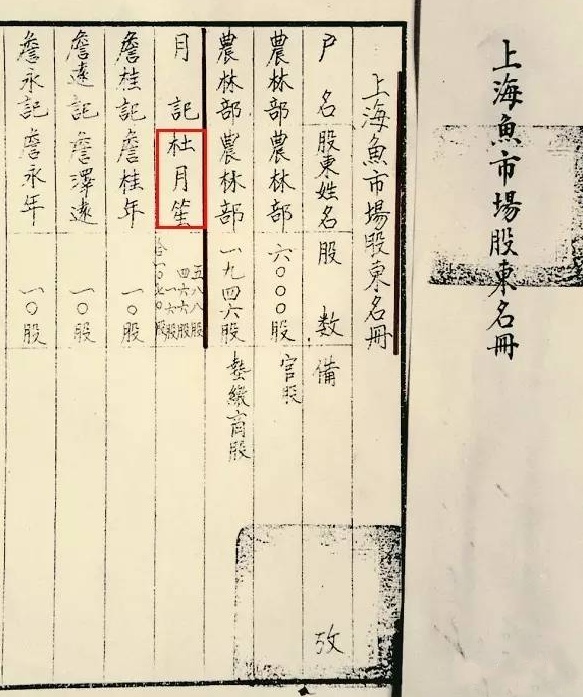 上海魚市場股東名冊
上海魚市場股東名冊
户名 股東姓名 股數 備攷
農林部 農林部 六〇〇〇股 官股
農林部 農林部 一九四六股 墊繳商股
月記 杜月笙 五八八股
四六六股
一六股
一〇七〇股
詹桂記 詹桂年 一〇股
詹遠記 詹澤遠 一〇股
詹永記 詹永年 一〇股